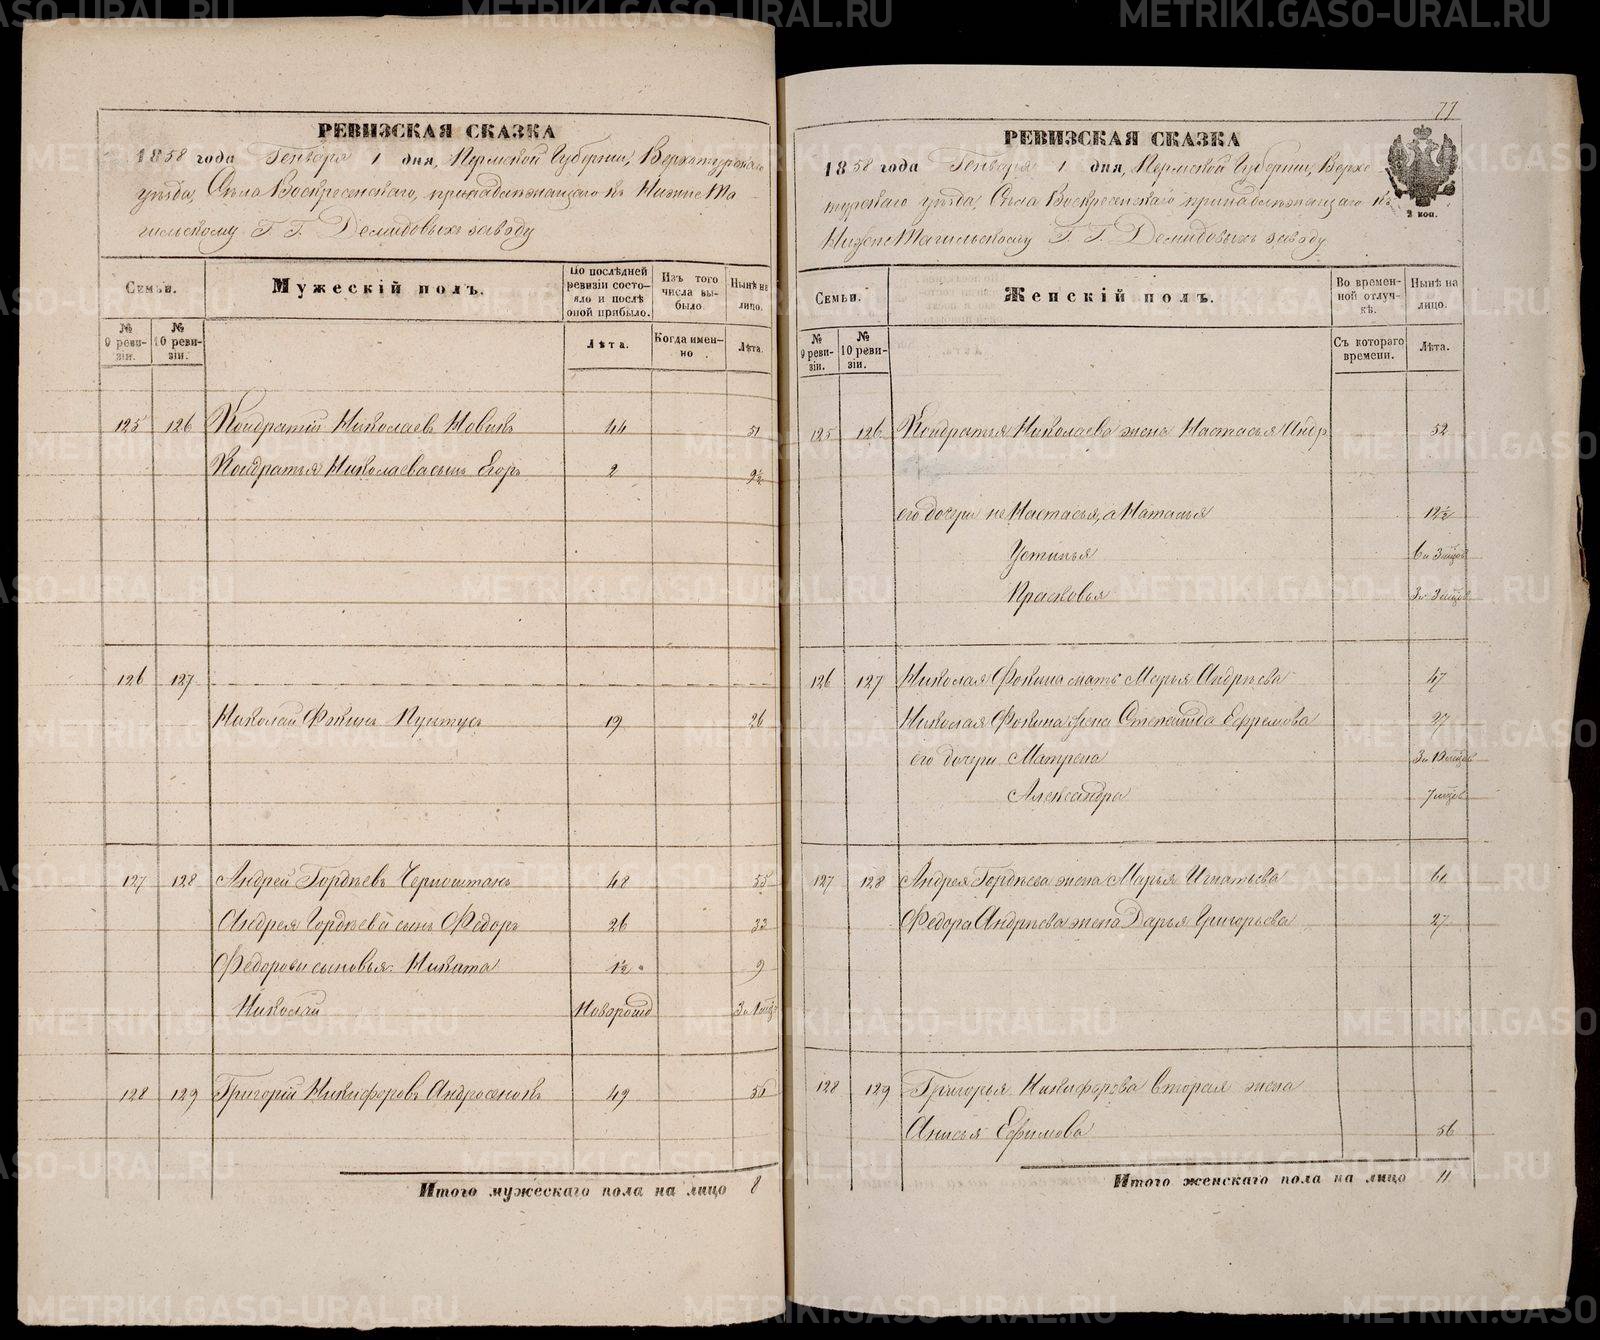 РЕВИЗСКАЯ СКАЗКА
1858 года Генваря 1 дня, Пермской Губерніи, Верхотурскаго
уѣзда, Села Воскресенскаго, принадлежащаго къ НижнеТа-
гильскому Г. Г. Демидовыхъ заводу
Семьи.
Мужескій полъ.
По послѣдней ревизіи состояло и послѣ оной прибыло.
Изъ того числа выбыло.
Нынѣ на лицо.
№ 9 ревизіи.
№ 10 ревизіи.
Лѣта.
Когда именно
Лѣта.
125 126 Кондратій Николаевъ Новикъ 44 51
Кондратья Николаева сынъ Егоръ 2 9½
126 127
Николай Фокинъ Пунтусъ 19 26
127 128 Андрей Гордѣевъ Черноштанъ 48 55
Андрея Гордѣева сынъ Федоръ 26 33
Федоровы сыновья: Никита 1½ 9
Николай Новорожд 3 и 1 мѣс
128 129 Григорій Никифоровъ Андросенковъ 49 56
Итого мужескаго пола на лицо 8
77
РЕВИЗСКАЯ СКАЗКА
1858 года Генваря 1 дня, Пермской Губерніи, Верхо
турскаго уѣзда, Села Воскресенскаго принадлежащаго къ
НижнеТагильскому Г. Г. Демидовыхъ заводу
2 коп.
Семьи.
Женскій полъ.
Во временной отлучкѣ.
Нынѣ на лицо.
№ 9 ревизіи.
№ 10 ревизіи.
Съ котораго времени.
Лѣта.
125 126 Кондратья Николаева жена Настасья Андр 52
его дочери не Настасья, а Наталья 12½
Устинья 6 и 3 мѣсяц
Прасковья 3 и 3 мѣсяц
126 127 Николая Фокина мать Марья Андрѣева 47
Николая Фокина жена Степанида Ефремова 27
его дочери Матрена 3 и 10 мѣсяц
Александра 7 мѣсяц
127 128 Андрея Гордѣева жена Марья Игнатьева 61
Федора Андрѣева жена Дарья Григорьева 27
128 129 Григорья Никифорова вторая жена
Анисья Ефимова 56
Итого женскаго пола на лицо 11
METRIKI.GASO-URAL.RU